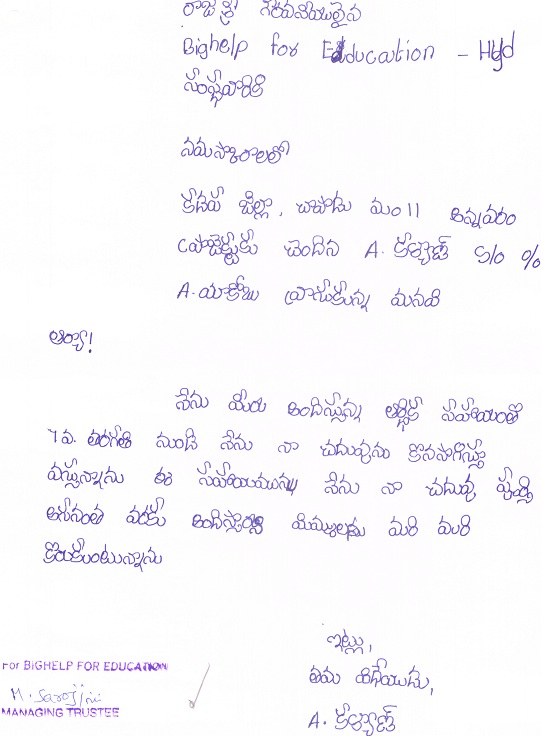 రాజశ్రీ గౌరవనీయులైన
Bighelp for Education – Hyd
సంస్థవారికి
నమస్కారాలతో
కడప జిల్లా, చాపాడు మం|| అన్నవరం
ప్రాజెక్టుకు చెందిన A. కళ్యాణ్ S/o %
A. యాకోబు వ్రాసుకున్న మనవి
అయ్యా!
నేను మీరు అందిస్తున్న ఆర్థిక సహాయంతో
7వ. తరగతి నుండి నేను నా చదువును కొనసాగిస్తూ
వస్తున్నాను ఈ సహాయమును నేను నా చదువు పూర్తి
అగునంత వరకు అందిస్తారని మిమ్ములను మరి మరి
కోరుకుంటున్నాను
ఇట్లు,
తమ విధేయుడు,
A. కళ్యాణ్
For BIGHELP FOR EDUCATION
M. Sarojini
MANAGING TRUSTEE